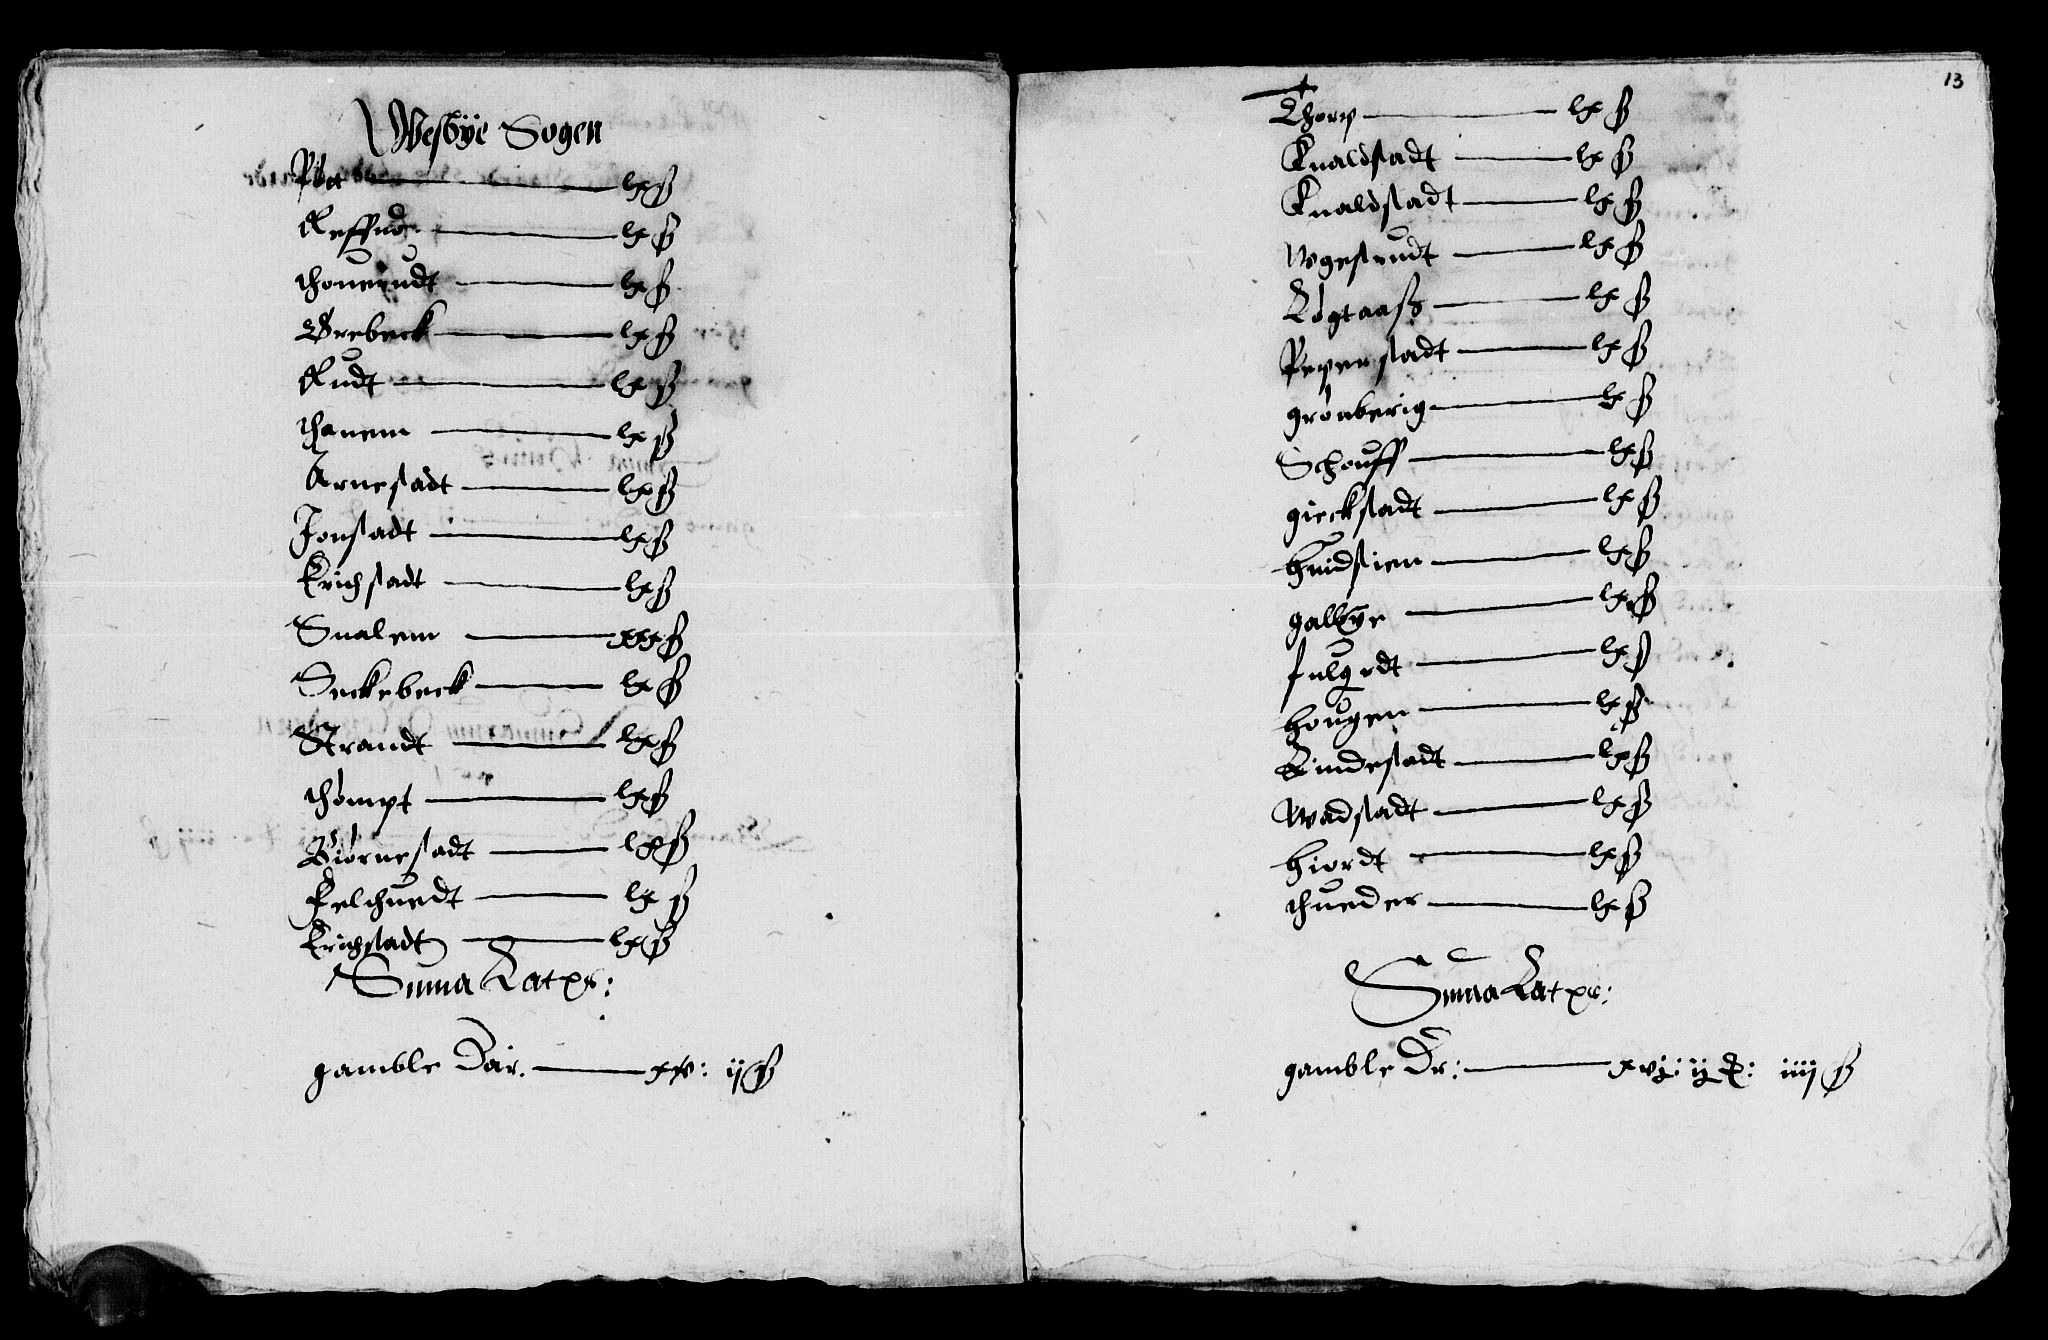 Westbÿe Sogen
Røer — lx ß
Reffuø — lx ß
thoueruudt — lx ß
Brebeck — lx ß
Rudt — lx ß
thanem — lx ß
Arnestadt — lx ß
Jonstadt — lx ß
Erichstadt — lx ß
Snalem — xxx ß
Seckebeck — lx ß
Strandt — lx ß
thompt — lx ß
Biørnestadt — lx ß
Kelchuedt — lx ß
Erichstadt — lx ß
Suma Lat
gamble Dlr. — xv: ij ß
13
Thorp — lx ß
Knaldstadt — lx ß
Knaldstadt — lx ß
Wgestrudt — lx ß
— lx ß
Peperstadt — lx ß
grønberig — lx ß
Schouff — lx ß
gieckstadt — lx ß
huidstien — lx ß
galbye — lx ß
— lx ß
hougen — lx ß
Lindestadt — lx ß
Wadstadt — lx ß
hiordt — lx ß
thueder — lx ß
Suma Lat
gamble Dr: — xvj: ij iiij ß